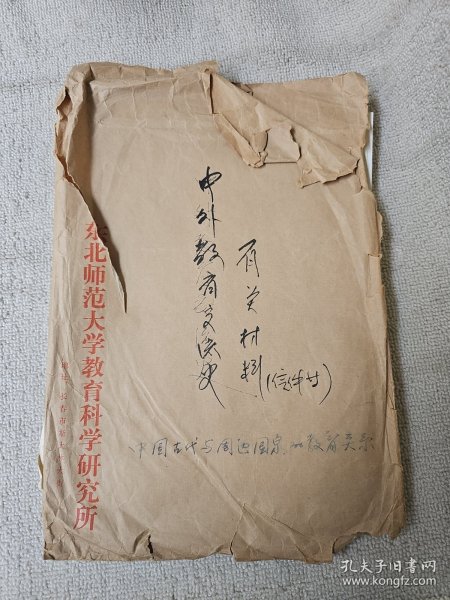 东北师范大学教育科学研究所
中外教育交流史
有关材料(信件付)
中国古代与周边国家的教育关系
孔夫子旧书网
www.kongfz.com